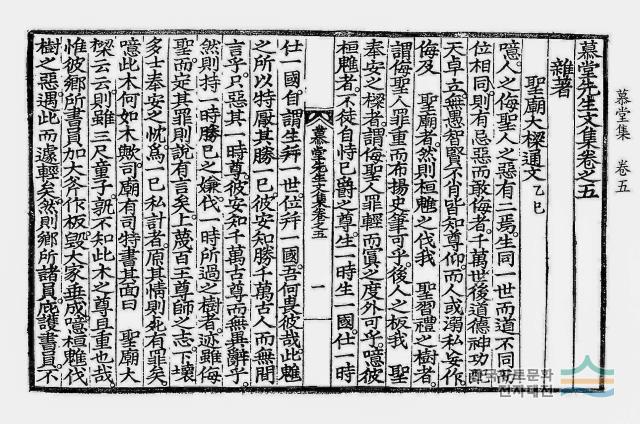 慕堂先生文集卷之五
雜著
聖廟大樑通文乙巳
噫人之侮聖人之惡有二焉生同一世而道不同功
位相同則有忌惡而敢侮者千萬世後道德神功配
天卓立無愚智賢不肖皆知尊仰而人或溺私妄作
侮反 聖廟者然則桓魋之伐我 聖習禮之樹者
謂侮聖人罪重而布揚史筆可乎後人之板我 聖
奉安之樑者謂侮聖人罪輕而寘之度外可乎噫彼
桓魋者不徒自恃已爵之尊生一時生一國仕一時
慕堂先生文集卷之五 一
仕一國自謂生并一世位并一國吾何畏彼哉此魋
之所以特厭其勝一已彼安知勝千萬古人而無間
言乎只惡其一時尊彼安知千萬古尊而無異辭乎
然則持一時勝已之嫌伐一時所過之樹者迹雖侮
聖而定其罪則說有言矣上蔑百王尊師之志下壞
多士奉安之忱爲一已私計者原其情則死有罪矣
噫此木何如木歟司廟有司特書其面曰 聖廟大
樑云云則雖三尺童子孰不知此木之尊且重也哉
惟彼鄕所書員加大斧作板毁大家垂成噫桓魋伐
樹之惡遇此而遽輕矣然則鄕所諸員庇護書員不
慕堂集 卷五
한국학토문화
전자대전